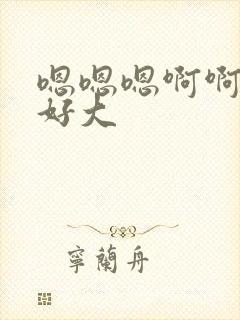 嗯嗯嗯啊啊
好大
寧蘭舟